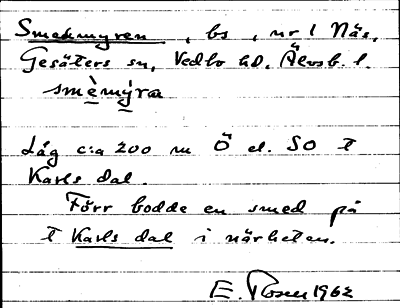 Smedmyren, bs, nr 1 Näs,
Gesäters sn, Vedbo hd, Älvsb. l.
smèmýra
Låg c:a 200 m Ö el. SO t
Karls dal.
Förr bodde en smed på
t Karls dal i närheten.
E. Rosen 1962